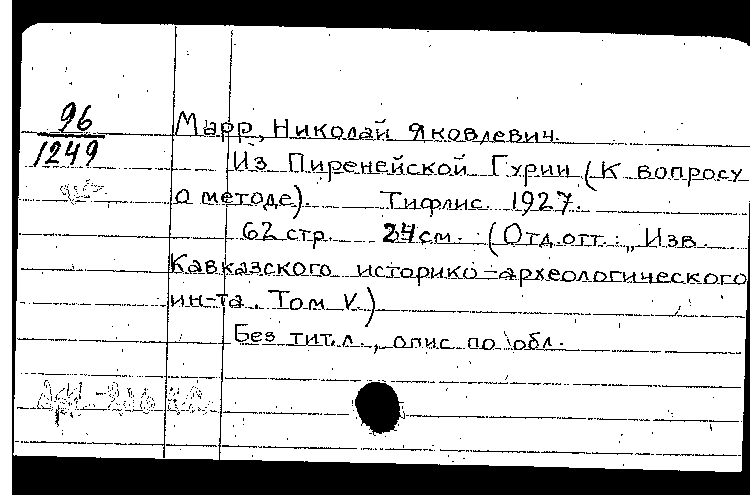 96
1249
Марр, Николай Яковлевич.
Из Пиренейской Гурии (К вопросу
о методе). Тифлис. 1927.
62 стр. 24 см. (Отд. отт.: „Изв.
Кавказского историко-археологического
ин-та. Том V.)
Без тит. л., опис по обл.